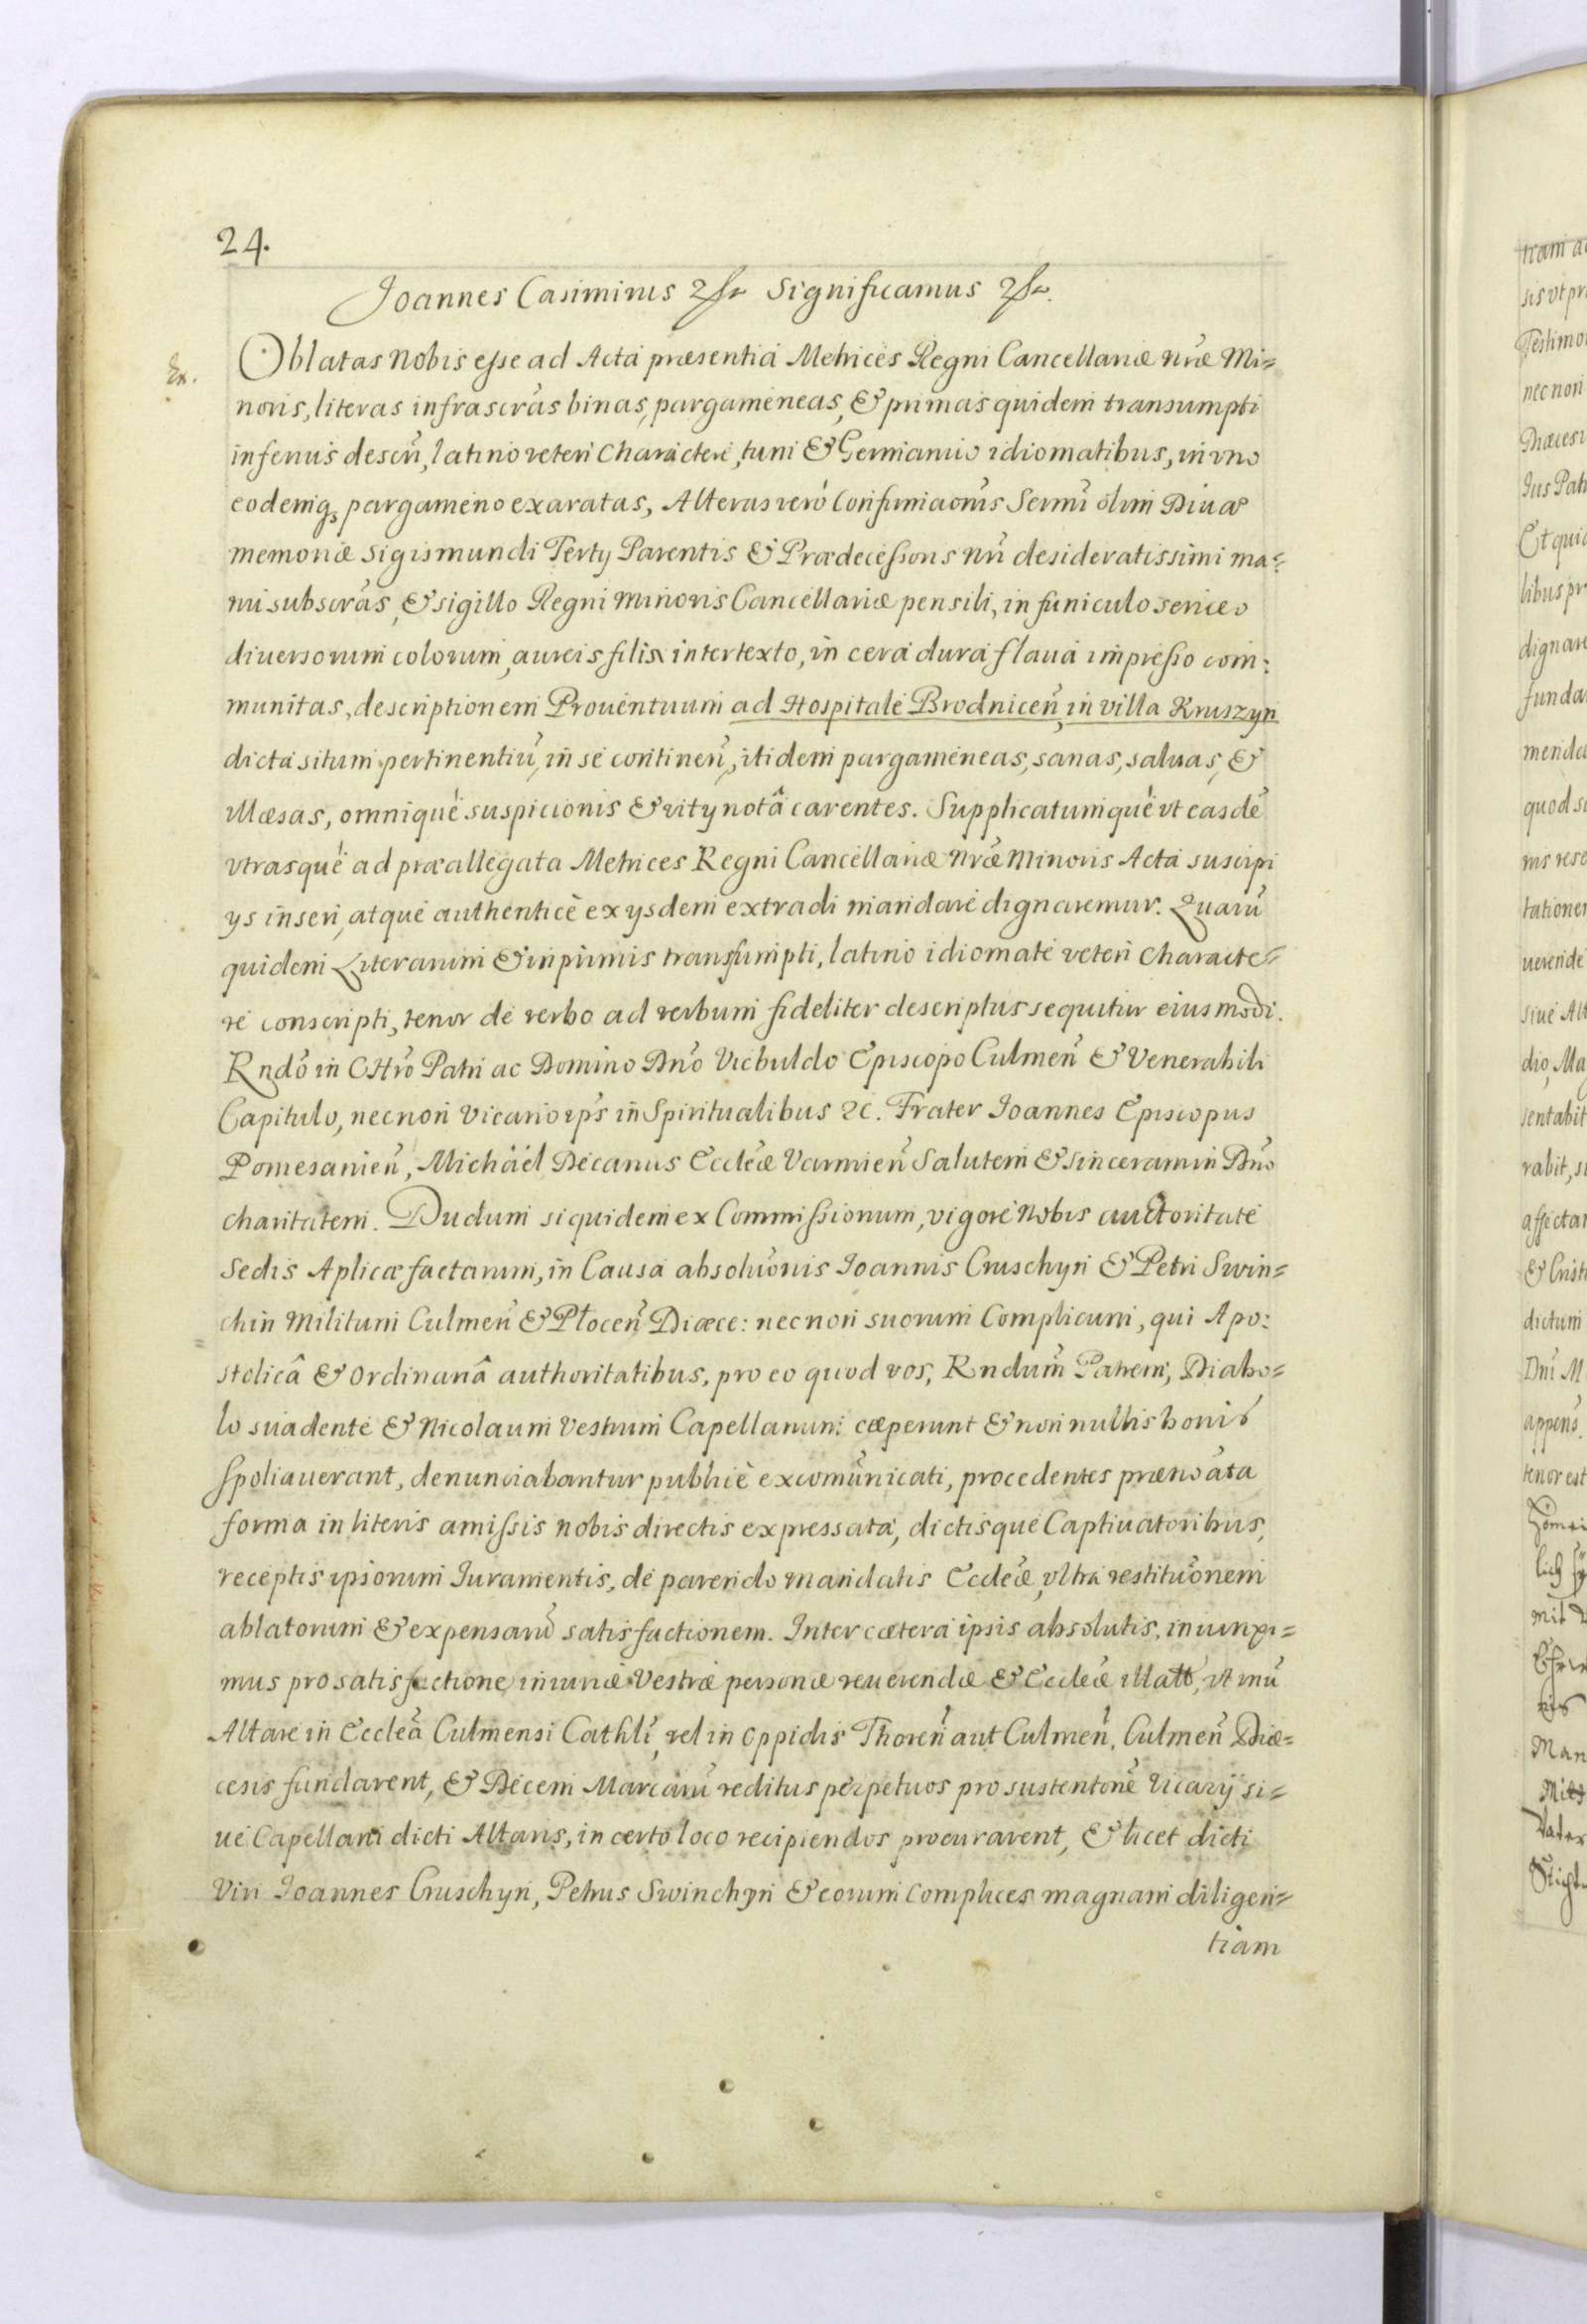 24.
Joannes Casimirus etc. Significamus etc.
Ex. Oblatas Nobis esse ad Acta præsentia Metrices Regni Cancellariæ nr̃æ Mi=
noris, literas infrascr̃as binas, pargameneas, & primas quidem transumpti
inferius descrĩ, latino veteri Charactere, tum & Germanico idiomatibus, in vno
eodemq3 pargameno exaratas, Alteras verò Confirmaõnis Sermĩ olim Diuæ
memoriæ Sigismundi Tertij Parentis & Prædecessoris nrĩ desideratissimi ma=
nu subscr̃as, & sigillo Regni Minoris Cancellariæ pensili, in funiculo sericeo
diuersorum colorum, aureis filis intertexto, in cera dura flaua impresso com:
munitas, descriptionem Prouentuum ad Hospitale Brodniceñ, in villa Kruszyn
dicta situm pertinentiũ, in se contineñ, itidem pargameneas, sanas, saluas, &
illæsas, omnique suspicionis & vitij notâ carentes. Supplicatumque vt easdẽ
vtrasque ad præallegata Metrices Regni Cancellariæ Nr̃æ Minoris Acta suscipi
ijs inseri, atque authenticè ex ijsdem extradi mandare dignaremur. Quarũ
quidem Literarum & inprimis transsumpti, latino idiomate veteri Characte=
re conscripti, tenor de verbo ad verbum fideliter descriptus sequitur eiusmodi.
Rndõ in CHrõ Patri ac Domino Dnõ Vicbuldo Episcopo Culmeñ & Venerabili
Capitulo, necnon Vicario ip̃s in Spiritualibus &c. Frater Joannes Episcopus
Pomesanieñ, Michäel Decanus Eccleæ̃ Varmieñ Salutem & sinceram in Dnõ
charitatem. Dudum siquidem ex Commissionum, vigore Nobis auctoritate
Sedis Aplicæ factarum, in Causa absoluõnis Joannis Cruschyn & Petri Swin=
chin Militum Culmeñ & Ploceñ Diœce: necnon suorum Complicum, qui Apo:
stolicâ & Ordinariâ authoritatibus, pro eo quod vos, Rndum̃ Patrem, Diabo=
lo suadente & Nicolaum Vestrum Capellanum cæperunt & non nullis bonis
spoliauerant, denunciabantur publicè excom̃unicati, procedentes prænoãta
forma in literis amissis nobis directis expressata, dictisque Captiuatoribus,
receptis ipsorum Juramentis, de parendo mandatis Eccleæ̃, vltra restituõnem
ablatorum & expensarũ satisfactionem. Inter cætera ipsis absolutis, iniunxi=
mus pro satisfactione iniuriæ Vestræ personæ reuerendæ & Eccleæ̃ illatæ, vt vnũ
Altare in Eccleã Culmensi Cathlĩ, vel in Oppidis Thoreñ aut Culmeñ, Culmeñ Diœ=
cesis fundarent, & Decem Marcarũ reditus perpetuos pro sustentonẽ Vicarij si=
ue Capellani dicti Altaris, in certo loco recipiendos procurarent, & licet dicti
Viri Joannes Cruschyn, Petrus Swinchyn & eorum Complices magnam diligen=
tiam